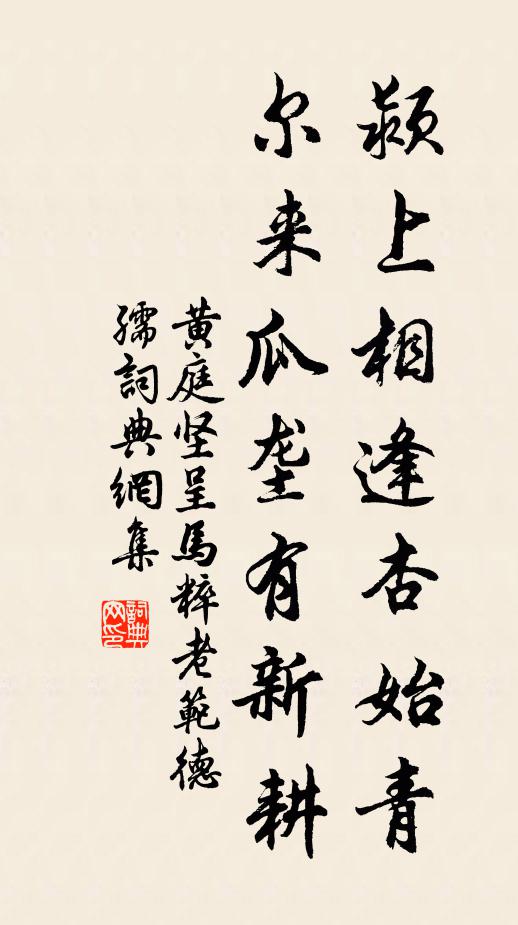 颍上相逢杏始青
尔来瓜垄有新耕
黄庭坚呈馬粹老範德
孺詞典網集
詞典网印